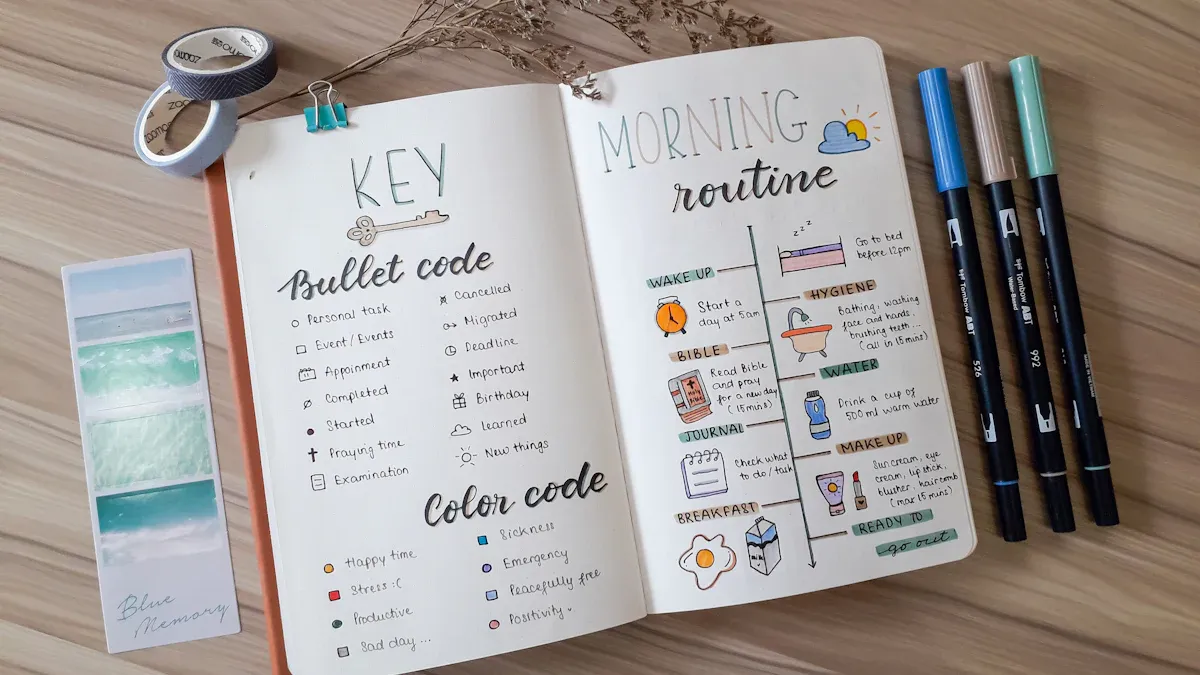 KEY
Bullet code
Personal task
Event/Events
Appoinment
Completed
Started
Praying time
Examination
Cancelled
Migrated
Deadline
Important
Birthday
Learned
New things
Color code
Happy time
Stress :(
Productive
Sad day ...
Sickness
Emergency
Peacefully free
Positivity
MORNING
routine
z z z
Go to bed
before 12pm
WAKE UP
Start a
day at 5am
HYGIENE
Bathing, washing
face and hands,
brushing teeth...
(all in 15mins)
BIBLE
Holy
Bible
Read Bible
and pray
for a new day
(15mins)
WATER
Drink a cup of
500ml warm water
JOURNAL
Check what
to do/task
MAKE UP
Sun cream, eye
cream, lipstick,
blusher, haircomb
(max 15mins)
BREAKFAST
milk
READY TO
go out
Blue
Memory
zoomo
Tombow ABT
526
Tombow ABT
992